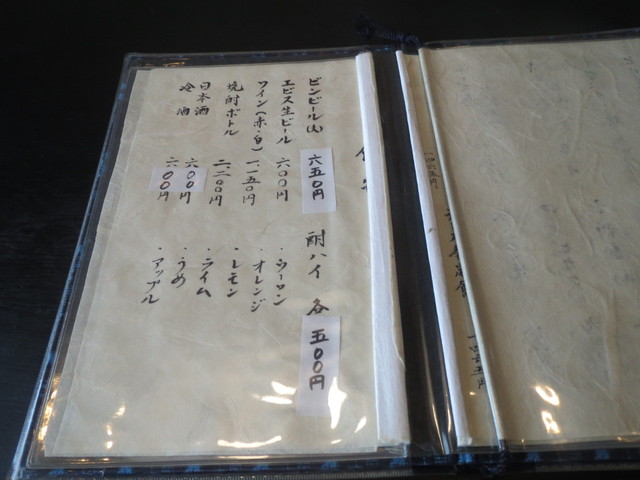 ビンビール(大) 六五〇円
エビス生ビール 六〇〇円
ワイン(赤・白) 一、一五〇円
焼酎ボトル 二二〇〇円
日本酒 六〇〇円
冷酒 六〇〇円
酎ハイ 各 五〇〇円
・ウーロン
・オレンジ
・レモン
・ライム
・うめ
・アップル